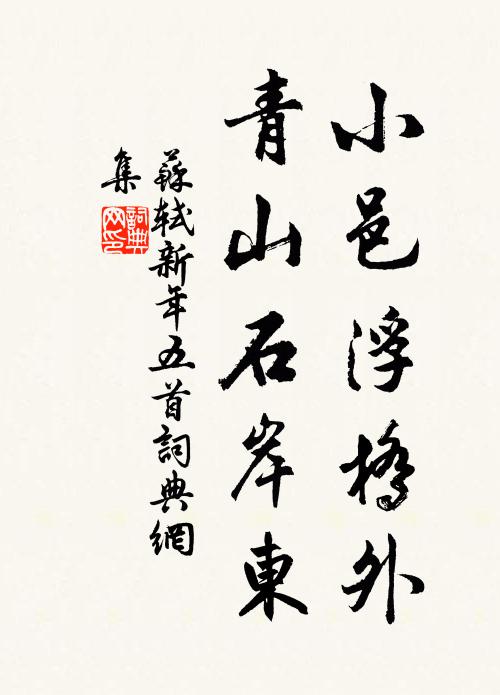 小邑浮橋外
青山石岸東
蘇軾新年五首詞典網
集
詞典
网印